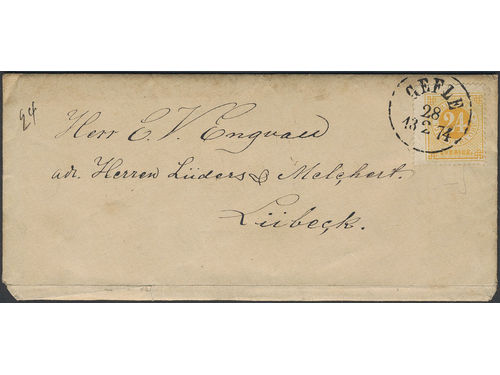 24
GEFLE
28
13 2 74
24
SVERIGE
Herr E. V. Engwall
adr. Herren Lüders & Melchert.
Lübeck.